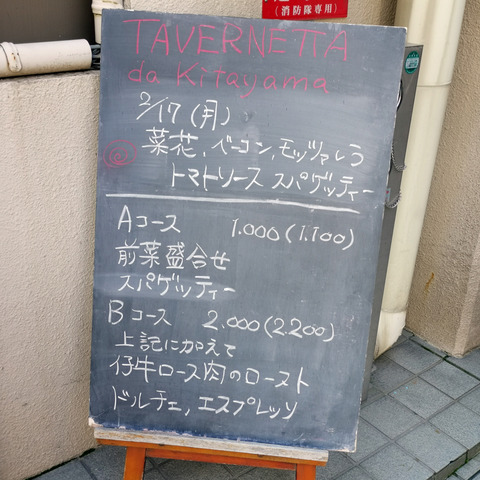 (消防隊専用)
TAVERNETTA
da Kitayama
2/17 (月)
菜花、ベーコン、モッツァレラ
トマトソース スパゲッティー
Aコース 1.000(1.100)
前菜盛合せ
スパゲッティー
Bコース 2.000(2.200)
上記に加えて
仔牛ロース肉のロースト
ドルチェ、エスプレッソ